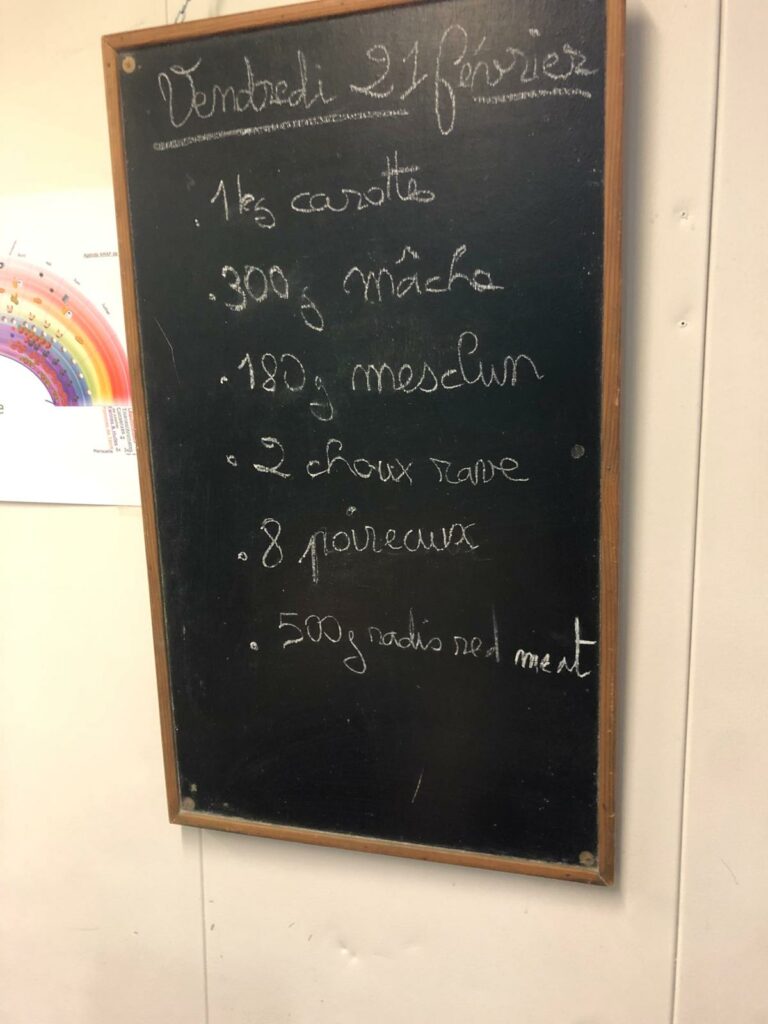 Vendredi 21 février
. 1 kg carotte
. 300g mâche
. 180g mesclun
. 2 choux rave
. 8 poireaux
. 500g radis red meat
Agenda AMAP de